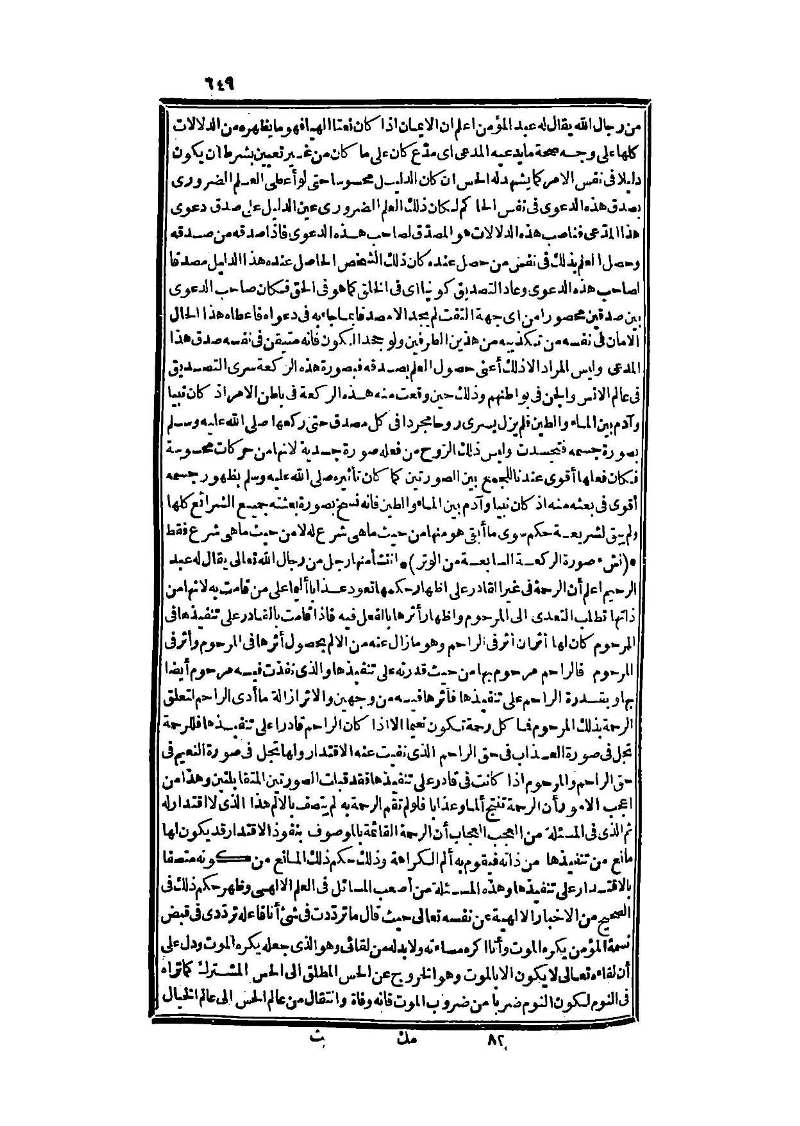 ٦٤٩
من رجال الله يقال له عبد المؤمن اعلم ان الايمان اذا كان نعتا الهيا فهو ما يظهره من الدلالات
كلها على وجه صحة ما يدعيه المدعى اى مدّع كان على ما كان من غير تعيين بشرط ان يكون
دليلا فى نفس الامر كما يشهد له الحس ان كان الدليل محسوسا حتى لو أعطى العلم الضرورى
بصدق هذه الدعوى فى نفس الحاكم لكان ذلك العلم الضرورى عين الدليل على صدق دعوى
هذا المدّعى فناصب هذه الدلالات هو المصدّق لصاحب هذه الدعوى فاذا صدقه من صدقه
وحصل العلم بذلك فى نفس من حصل عنده كان ذلك الشخص الحاصل عنده هذا الدليل مصدقا
لصاحب هذه الدعوى وعاد التصديق كونيا اى فى الخلق كما هو فى الحق فكان صاحب الدعوى
بين صدقين محصورا من اى جهة التفت لم يجد الا مصدقا بما جاء به فى دعواه فاعطاه هذا الحال
الامان فى نفسه من تكذيبه من هذين الطرفين ولو جحد الكون فانه متيقن فى نفسه صدق هذا
المدعى وليس المراد الا ذلك أعنى حصول العلم بصدقه فبصورة هذه الركعة سرى التصديق
فى عالم الانس والجن فى بواطنهم وذلك حين وقعت منه هذه الركعة فى باطن الامر اذ كان نبيا
وآدم بين الماء والطين فلم يزل يسرى روحا مجردا فى كل مصدق حتى ركعها صلى الله عليه وسلم
بصورة جسمه فتجسدت وليس ذلك الروح من فعله صورة جسدية لانها من حركات محسوسة
فكان فعلها أقوى عندنا للجمع بين الصورتين كما كان تأثيره صلى الله عليه وسلم بظهور جسمه
أقوى فى بعثه منه اذ كان نبيا وآدم بين الماء والطين فانه نسخ بصورة بعثته جميع الشرائع كلها
ولم يبق لشريعة حكم سوى ما أبقى هو منها من حيث ما هى شرع له لا من حيث ما هى شرع فقط
*(نش صورة الركعة السابعة من الوتر)* انتشأ منها رجل من رجال الله تعالى يقال له عبد
الرحيم اعلم أن الرحمة فى غير القادر على اظهار حكمها تعود عذابا أليما على من قامت به لانها من
ذاتها تطلب التعدى الى المرحوم واظهار أثرها بالفعل فيه فاذا قامت بالقادر على تنفيذها فى
المرحوم كان لها أثران أثر فى الراحم وهو ما زال عنه من الالم بحصول أثرها فى المرحوم وأثر فى
المرحوم فالراحم مرحوم بها من حيث قدرته على تنفيذها والذى نفذت فيه مرحوم أيضا
بها وبقدرة الراحم على تنفيذها فأثرها فيه من وجهين والاثر ازالة ما أدى الراحم لتعلق
الرحمة بذلك المرحوم فما كل رحمة تكون نعيما الا اذا كان الراحم قادرا على تنفيذها فللرحمة
تجل فى صورة العذاب فى حق الراحم الذى نفيت عنه الاقتدار ولها تجل فى صورة النعيم فى
حق الراحم والمرحوم اذا كانت فى قادر على تنفيذها فقد قبلت الصورتين المتقابلتين وهذا من
اعجب الامور أن الرحمة تنتج ألما وعذابا فلو لم تقم الرحمة به لم يتصف بالالم هذا الذى لا اقتدار له
ثم الذى فى المسئلة من العجب العجاب أن الرحمة القائمة بالموصوف بنفوذ الاقتدار قد يكون لها
مانع من تنفيذها من ذاته فيقوم به ألم الكراهة وذلك حكم ذلك المانع من كونه متصفا
بالاقتدار على تنفيذها وهذه المسئلة من أصعب المسائل فى العلم الالهى وظهر حكم ذلك فى
الصحيح من الاخبار الالهية عن نفسه تعالى حيث قال ما ترددت فى شئ أنا فاعله ترددى فى قبض
نسمة المؤمن يكره الموت وأنا اكره مساءته ولا بد له من لقائى وهو الذى جعله يكره الموت ودل على
أن لقاءه تعالى لا يكون الا بالموت وهو الخروج عن الحس المطلق الى الحس المشترك كما تراه
فى النوم لكون النوم ضربا من ضروب الموت فانه وفاة وانتقال من عالم الحس الى عالم الخيال
٨٢ مك ث